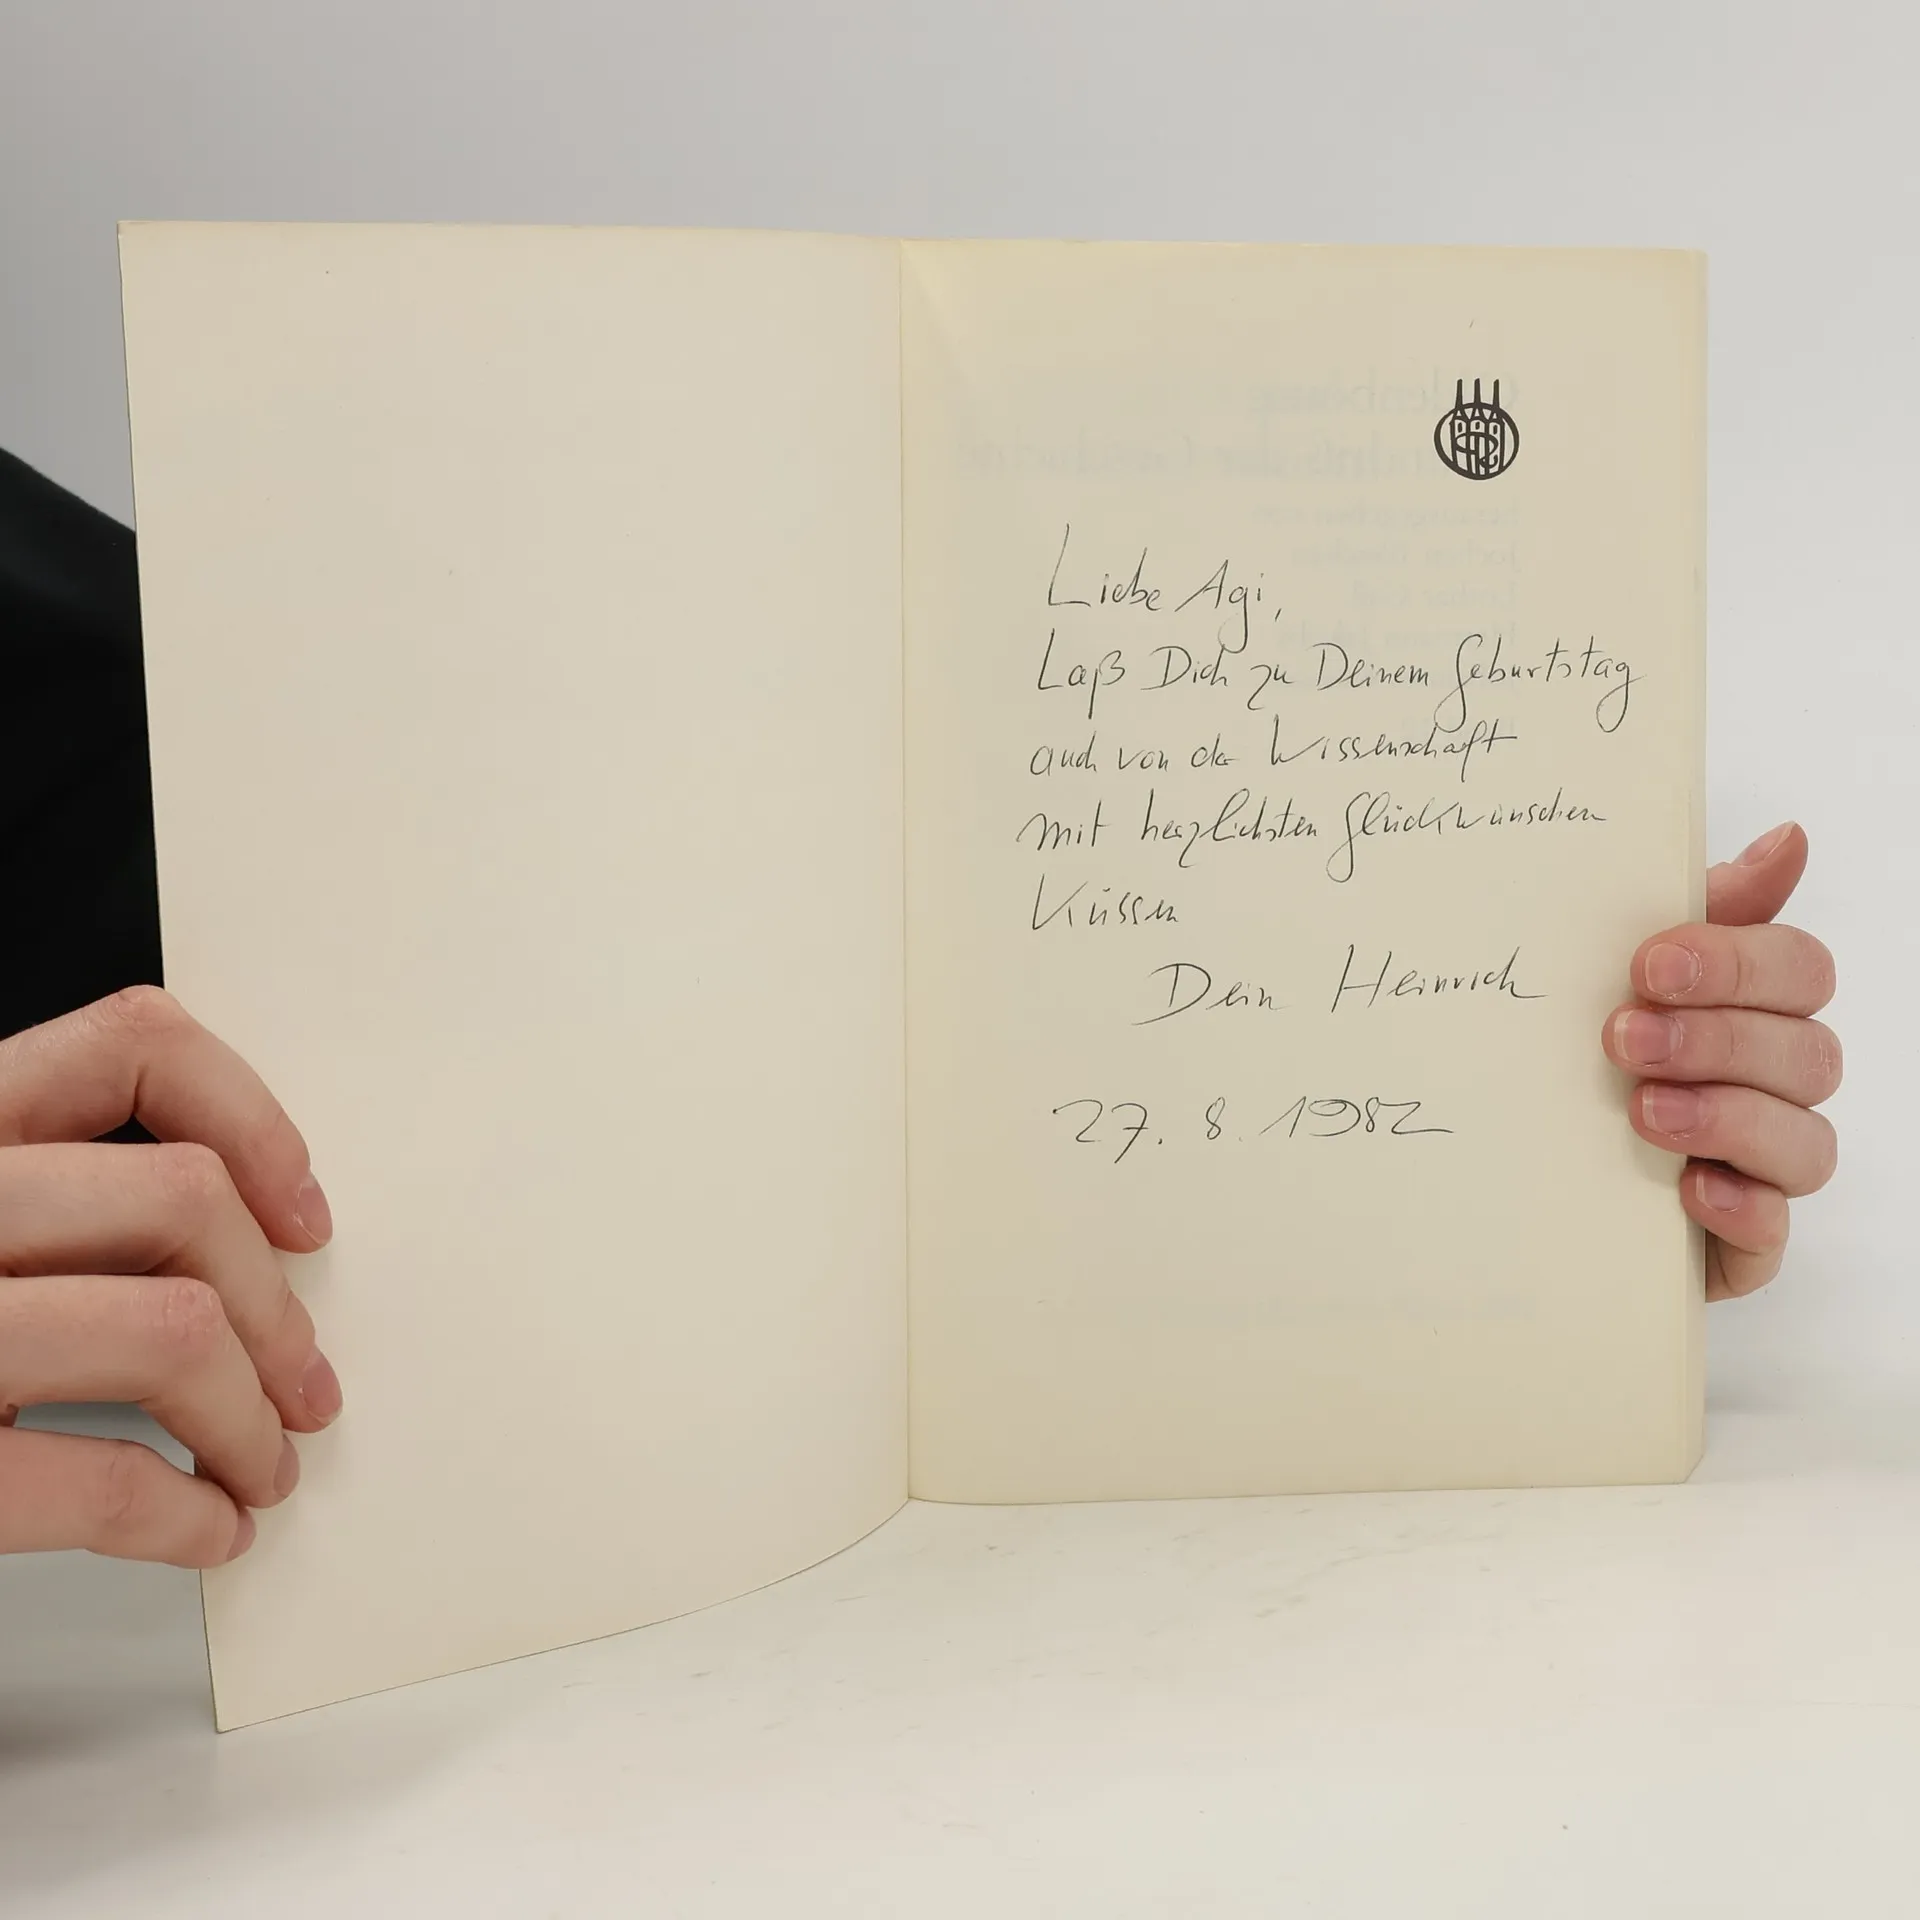 Liebe Agi,
Laß Dich zu Deinem Geburtstag
auch von der Wissenschaft
mit herzlichsten Glückwünschen
Küssen
Dein Heinrich
27. 8. 1982